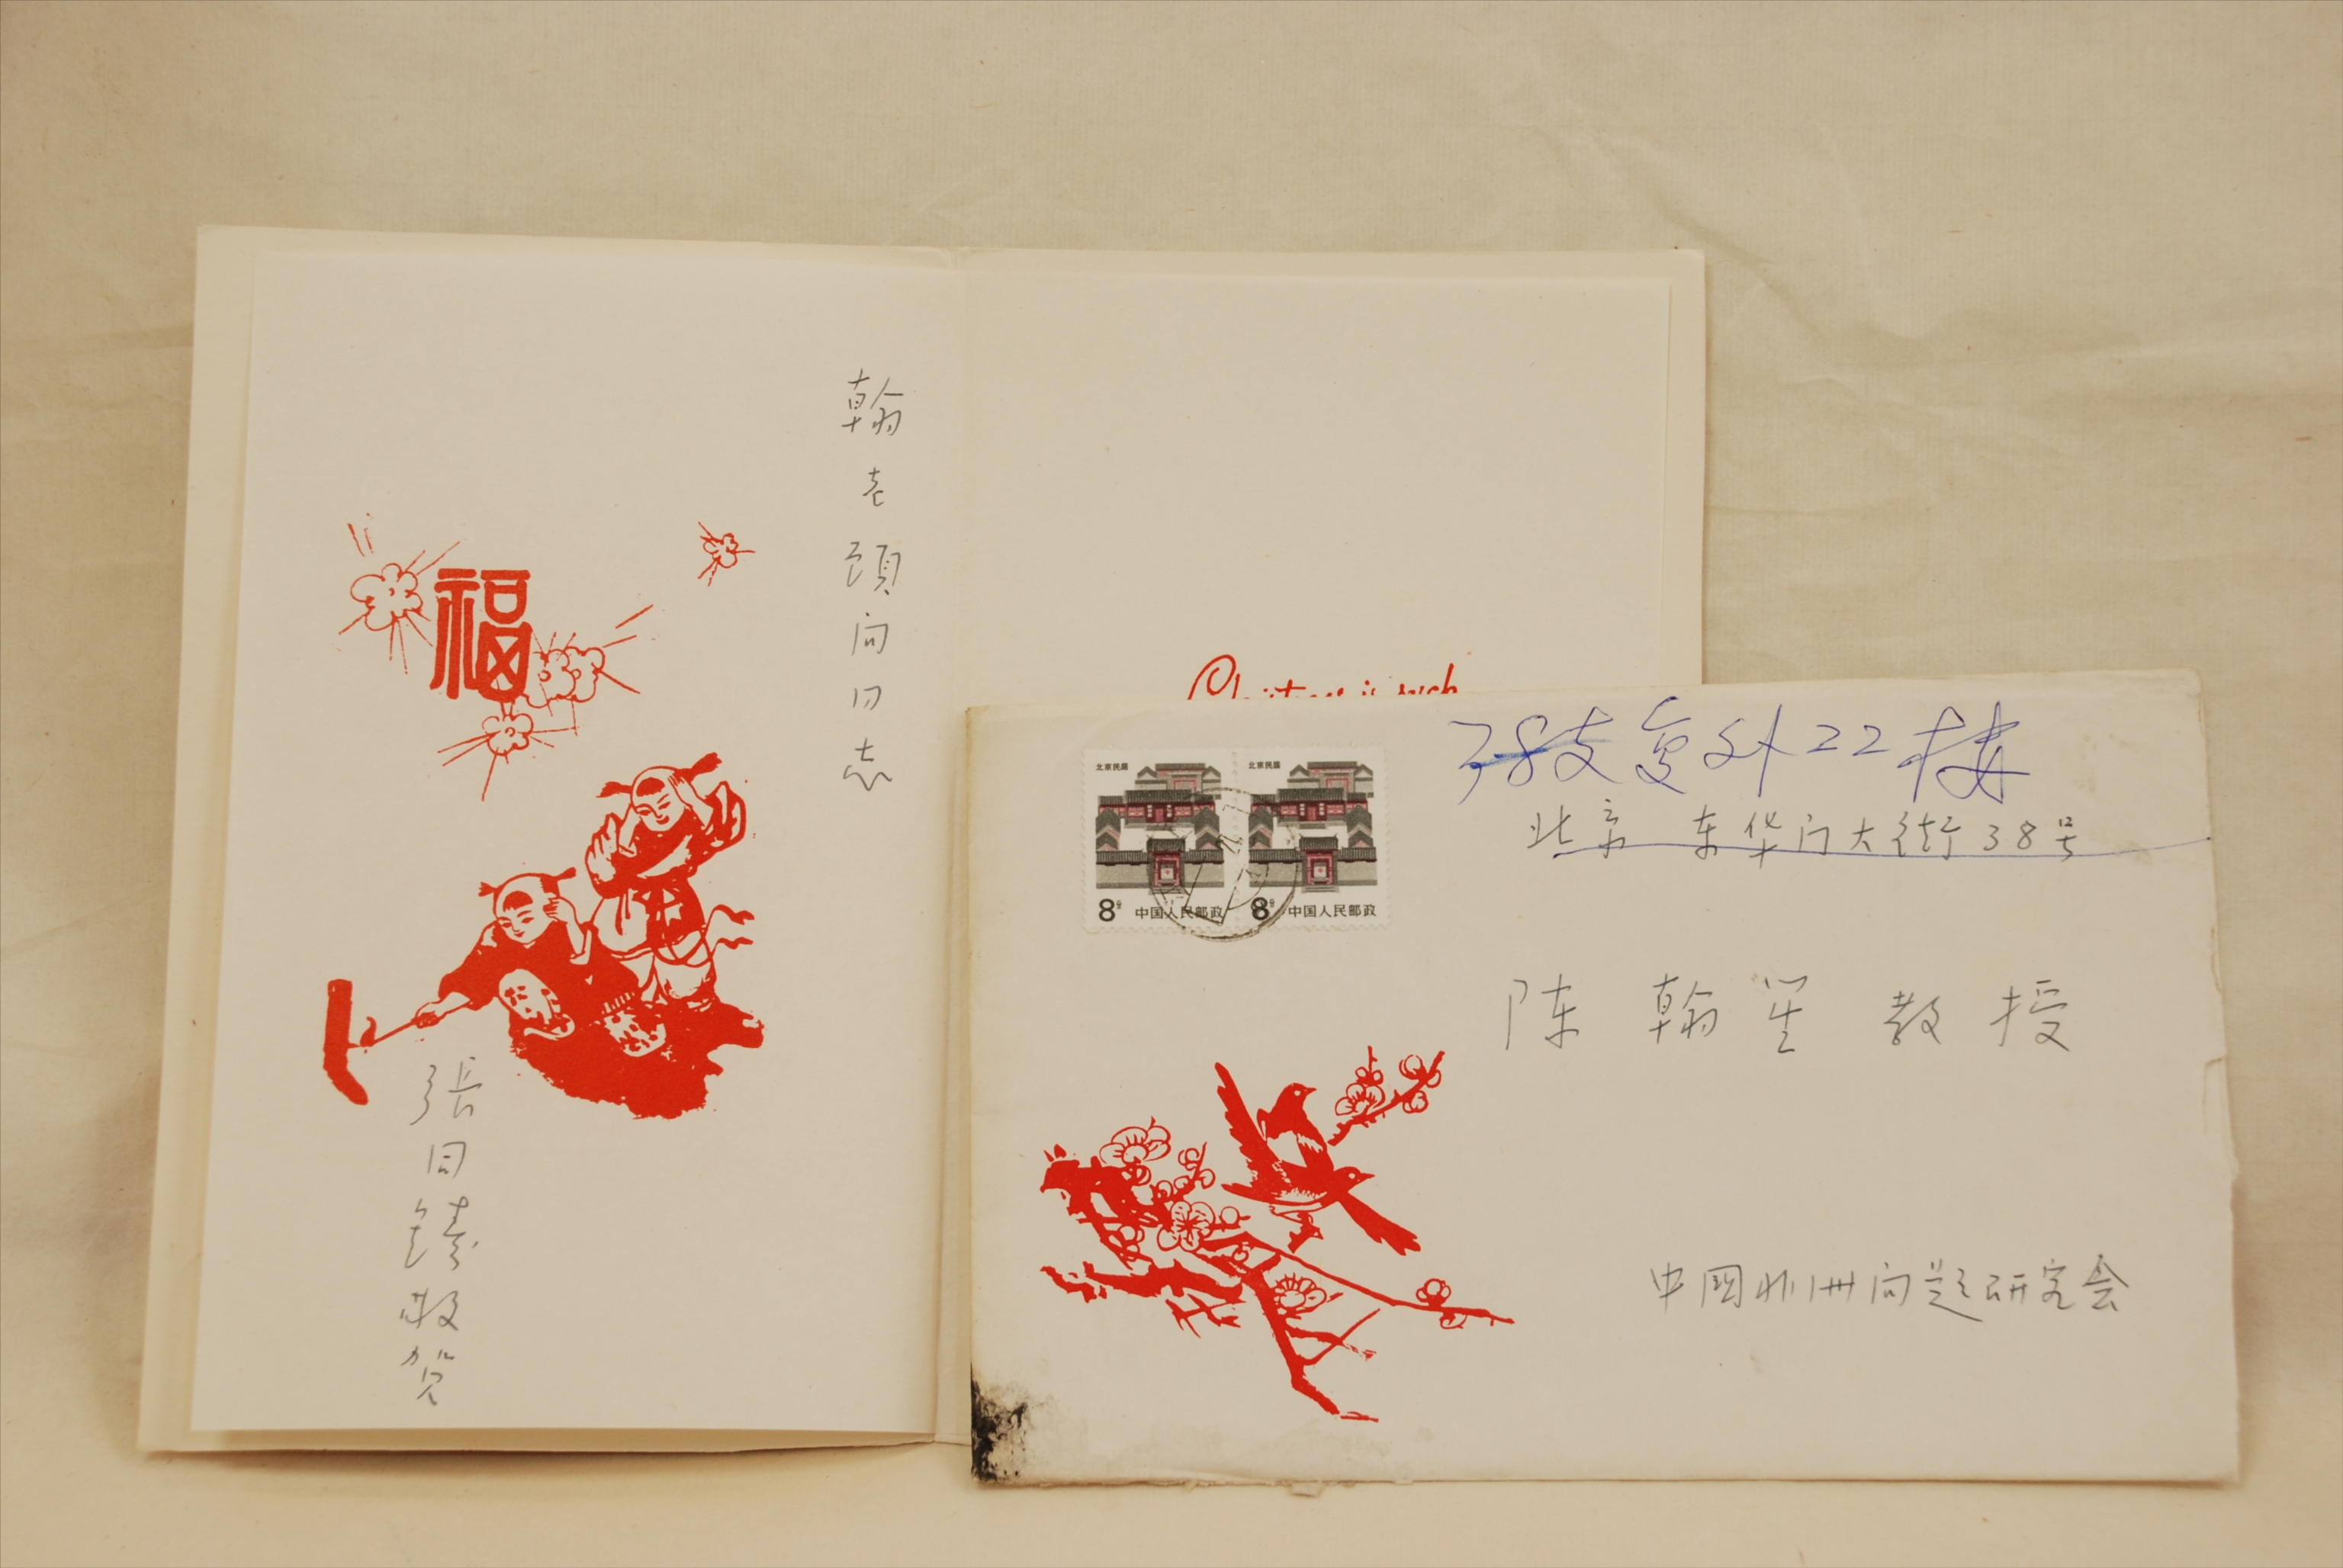 翰老顾问同志
福
張同鑄敬贺
is such
支复外22楼
北京 东华门大街38号
北京民居
8分 中国人民邮政
北京民居
8分 中国人民邮政
陈翰笙 教授
中國非洲问题研究会